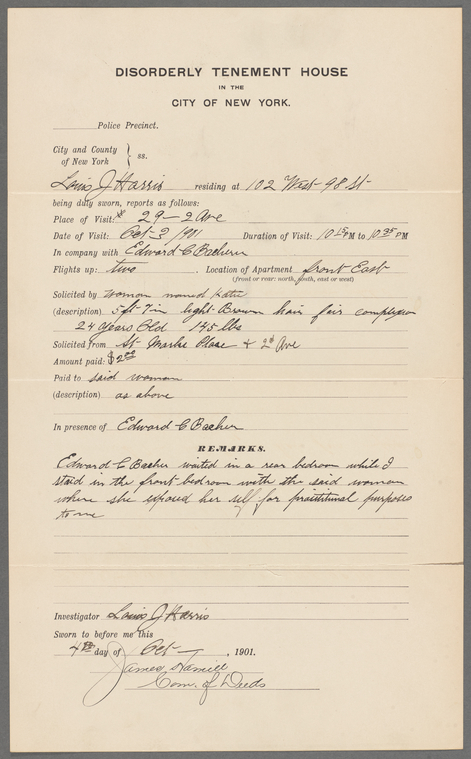 DISORDERLY TENEMENT HOUSE
IN THE
CITY OF NEW YORK.
Police Precinct.
City and County
of New York } ss.
Louis J Harris residing at 102 West 98 St
being duly sworn, reports as follows:
Place of Visit: # 29 - 2 Ave
Date of Visit: Oct-3/1901 Duration of Visit: 10 15 PM to 10 35 PM
In company with Edward C Bacherer
Flights up: two . Location of Apartment front East
(front or rear: north, south, east or west)
Solicited by woman named Katie
(description) 5 ft 7 in light Brown hair fair complexion
24 years Old 145 lbs
Solicited from St Marks Place & 2d Ave
Amount paid: $2.00
Paid to said woman
(description) as above
In presence of Edward C Bacher
REMARKS.
Edward C Bacher waited in a rear bedroom while I
staid in the front bedroom with the said woman
where she exposed her self for prostitutual purposes
to me
Investigator Louis J Harris
Sworn to before me this
4th day of Oct , 1901.
James Hamill
Com. of Deeds